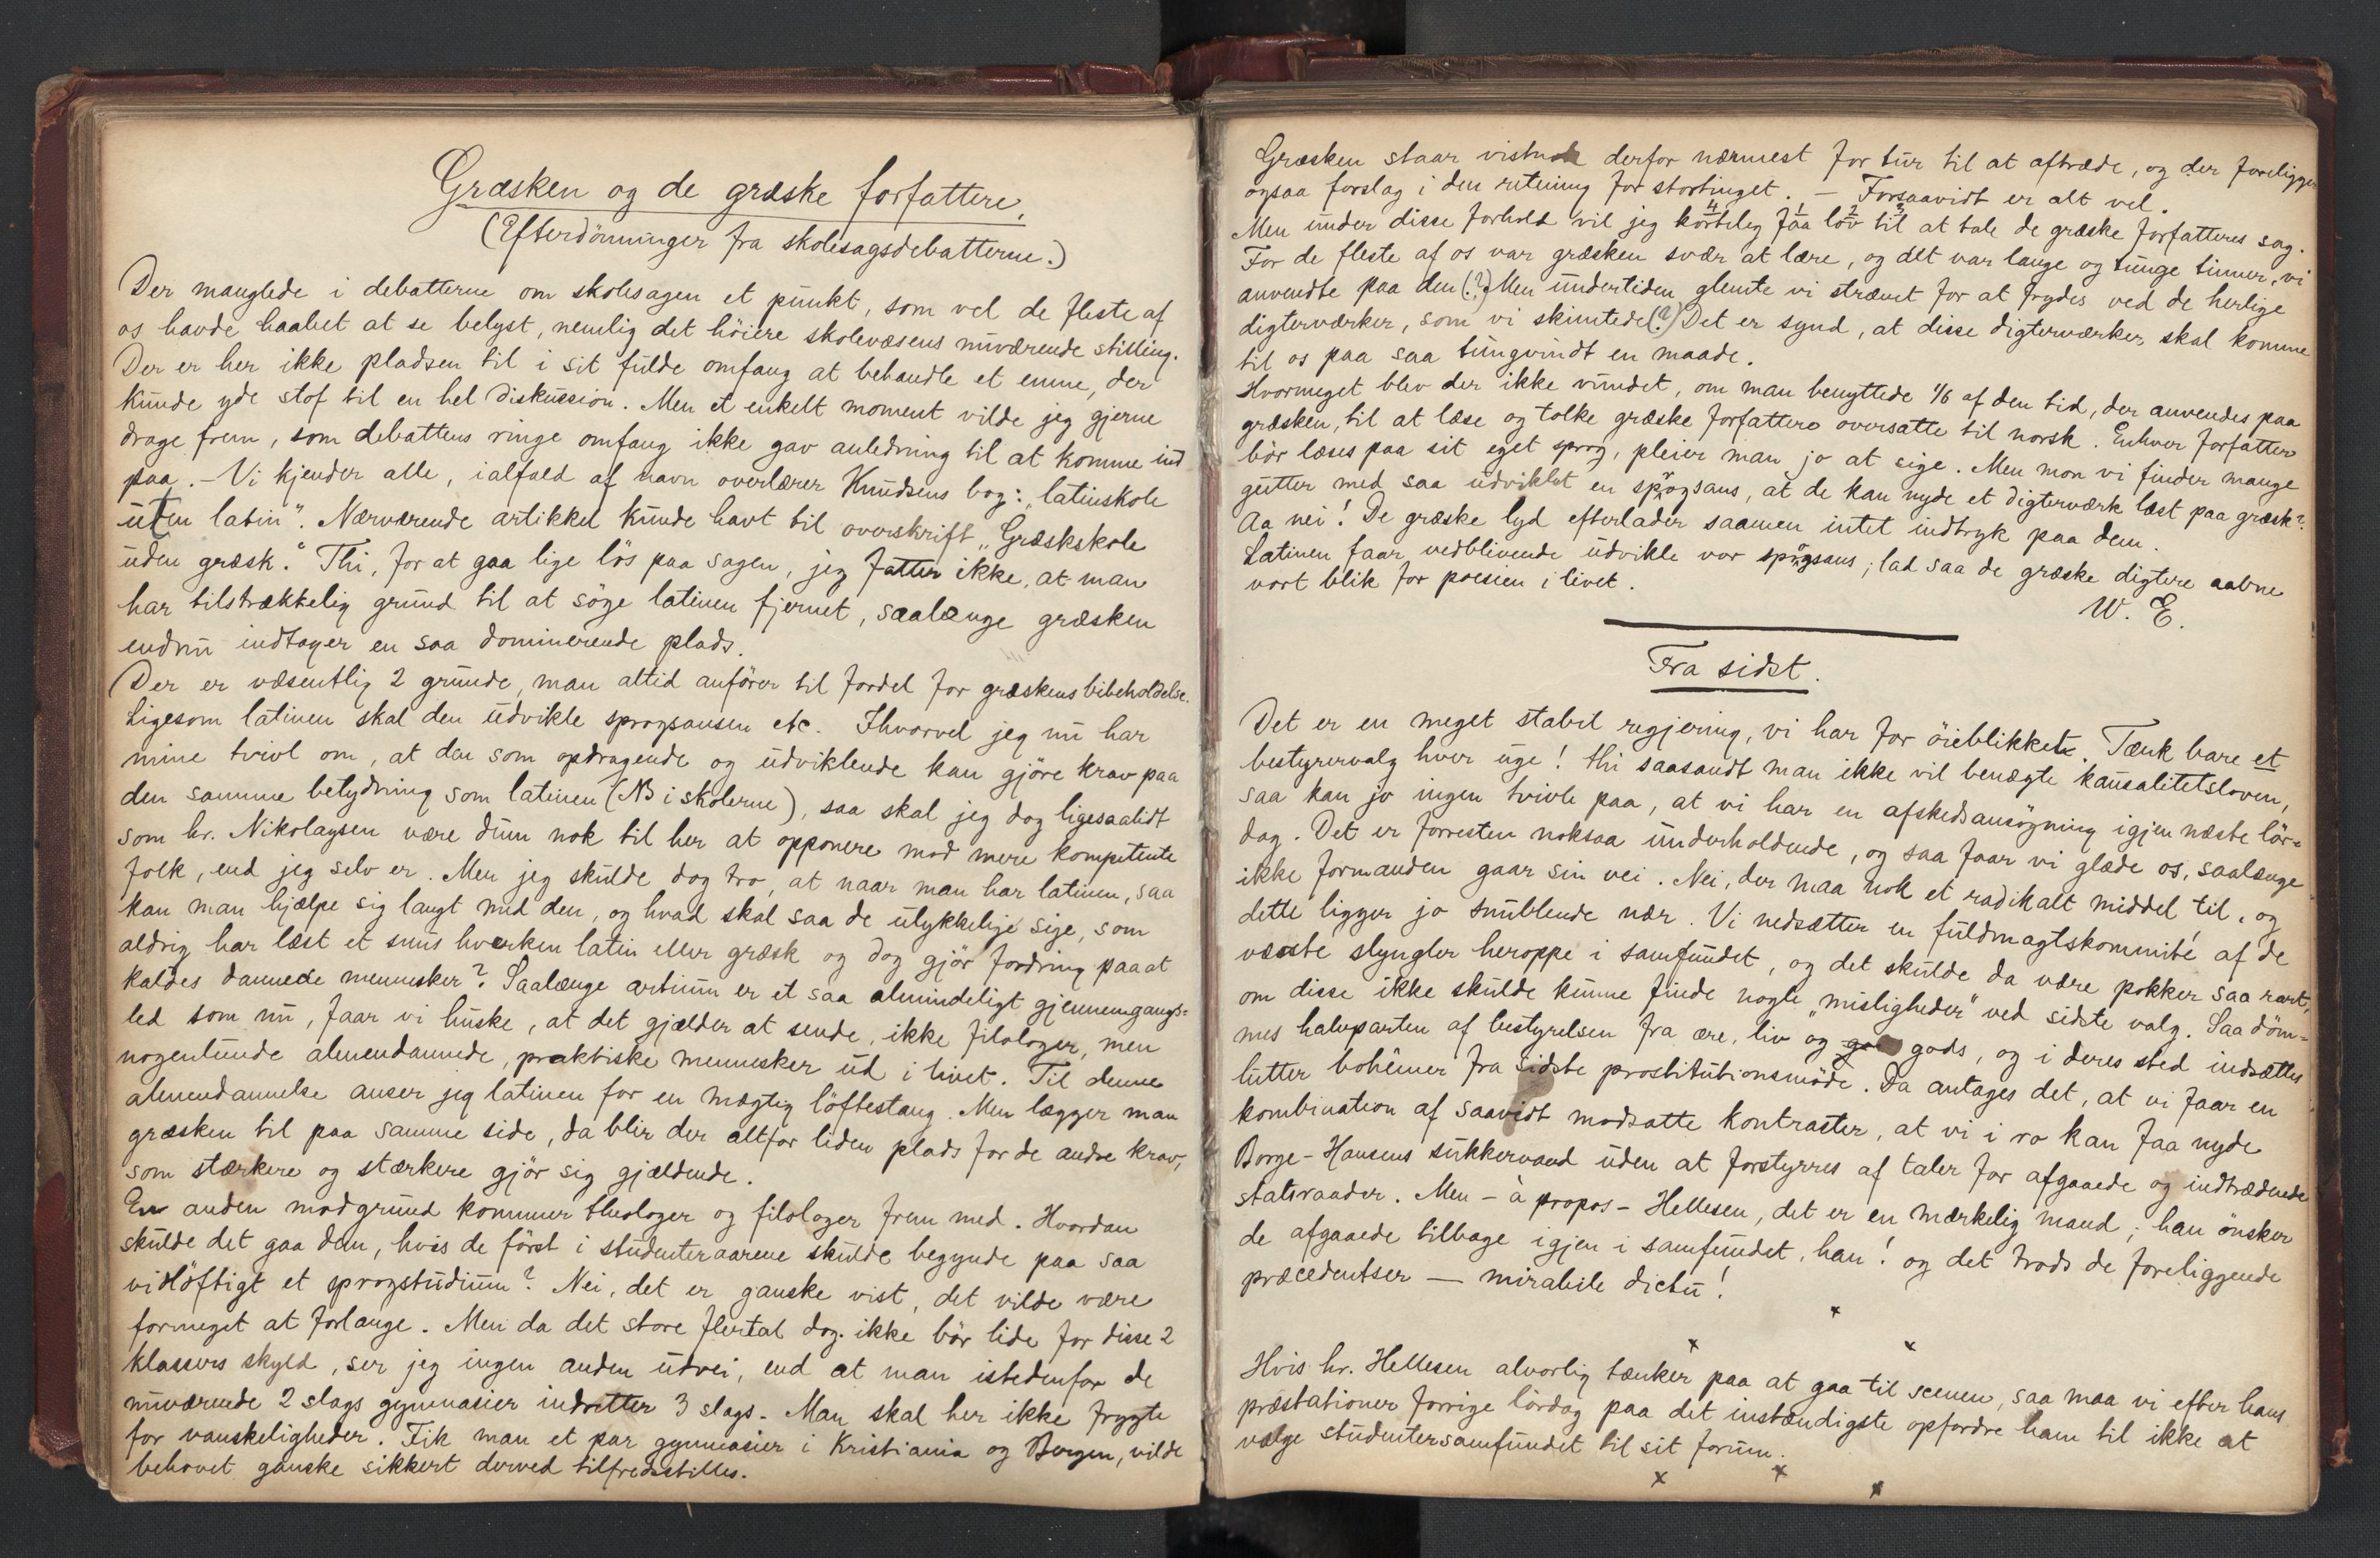 Græsken og de græske forfattere.
(Efterdönninger fra skolesagsdebatterne.)
Der manglede i debatterne om skolesagen et punkt, som vel de fleste af
os havde haabet at se belyst, nemlig det höiere skolevæsens nuværende stilling.
Der er her ikke pladsen til i sit fulde omfang at behandle et emne, der
kunde yde stof til en hel diskussion. Men et enkelt moment vilde jeg gjerne
drage frem, som debattens ringe omfang ikke gav anledning til at komme ind
paa. - Vi kjender alle, ialfald af navn overlærer Knudsens bog: "latinskole
uten latin". Nærværende artikkel kunde havt til overskrift "Græskskole
uden græsk." Thi, for at gaa lige lös paa sagen, jeg fatter ikke, at man
har tilstrækkelig grund til at söge latinen fjernet, saalænge græsken
endnu indtager en saa dominerende plads.
Der er væsentlig 2 grunde, man altid anförer til fordel for græskens bibeholdelse.
Ligesom latinen skal den udvikle sprogsansen etc. Ihvorvel jeg nu har
mine tvivl om, at den som opdragende og udviklende kan gjöre krav paa
den samme betydning som latinen (NB i skolerne), saa skal jeg dog ligesaalidt
som hr. Nikolaysen være dum nok til her at opponere mod mere kompetente
folk, end jeg selv er. Men jeg skulde dog tro, at naar man har latinen, saa
kan man hjælpe sig langt med den, og hvad skal saa de ulykkelige sige, som
aldrig har læst et snus hverken latin eller græsk og dog gjör fordring paa at
kaldes dannede mennesker? Saalænge artium er et saa almindeligt gjennemgangs=
led som nu, faar vi huske, at det gjælder at sende, ikke filologer, men
nogenlunde almendannede, praktiske mennesker ud i livet. Til denne
almendannelse anser jeg latinen for en mægtig löftestang. Men lægger man
græsken til paa samme side, da blir der altfor liden plads for de andre krav,
som stærkere og stærkere gjör sig gjældende.
En anden modgrund kommer theologer og filologer frem med. Hvordan
skulde det gaa dem, hvis de först i studenteraarene skulde begynde paa saa
vidlöftigt et sprogstudium? Nei, det er ganske vist, det vilde være
formeget at forlange. Men da det store flertal dog ikke bör lide for disse 2
klassers skyld, ser jeg ingen anden udvei, end at man istedenfor de
nuværende 2 slags gymnasier indretter 3 slags. Man skal her ikke frygte
for vanskeligheder. Fik man et par gymnasier i Kristiania og Bergen, vilde
behovet ganske sikkert derved tilfredsstilles.
Græsken staar vistnok derfor nærmest for tur til at aftræde, og der foreligger
ogsaa forslag i den retning for stortinget. - Forsaavidt er alt vel.
Men under disse forhold vil jeg kortelig faa lov til at tale de græske forfatteres sag.
4 1 2 3
For de fleste af os var græsken svær at lære, og det var lange og tunge timer, vi
anvendte paa den (!?) Men undertiden glemte vi strævet for at frydes ved de herlige
digterværker, som vi skimtede(?) Det er synd, at disse digterværker skal komme
til os paa saa tungvindt en maade.
Hvormeget blev der ikke vundet, om man benyttede 1/6 af den tid, der anvendes paa
græsken, til at læse og tolke græske forfattere oversatte til norsk. Enhver forfatter
bör læses paa sit eget sprog, pleier man jo at sige. Men mon vi finder mange
gutter med saa udviklet en sprogsans, at de kan nyde et digterværk læst paa græsk?
Aa nei! De græske lyd efterlader saamen intet indtryk paa dem.
Latinen faar vedblivende udvikle vor sprogsans; lad saa de græske digtere aabne
vort blik for poesien i livet.
W. E.
Fra sidst.
Det er en meget stabil regjering, vi har for öieblikket. Tænk bare et
bestyrervalg hver uge! thi saasandt man ikke vil benægte kausalitetsloven,
saa kan jo ingen tvivle paa, at vi har en afskedsansögning igjen næste lör=
dag. Det er forresten noksaa underholdende, og saa faar vi glæde os, saalænge
ikke formanden gaar sin vei. Nei, der maa nok et radikalt middel til, og
dette ligger jo snublende nær. Vi nedsætter en fuldmagtskommité af de
væste slyngler heroppe i samfundet, og det skulde da være pokker saa rart,
om disse ikke skulde kunne finde nogle "misligheder" ved sidste valg. Saa döm=
mes halvparten af bestyrelsen fra ære, liv og gods, og i deres sted indsættes
lutter bohêmer fra sidste prostitutionsmöde. Da antages det, at vi faar en
kombination af saavidt modsatte kontraster, at vi i ro kan faa nyde
Borge-Hansens sukkervand uden at forstyrres af taler for afgaaede og indtrædende
statsraader. Men - à propos - Hellesen, det er en mærkelig mand; han önsker
de afgaaede tilbage igjen i samfundet, han! og det trods de foreliggende
præcedentser — mirabile dictu!
x x x
Hvis hr. Hellesen alvorlig tænker paa at gaa til scenen, saa maa vi efter hans
præstationer forrige lördag paa det instændigste opfordre ham til ikke at
vælge studentersamfundet til sit forum.
x x x